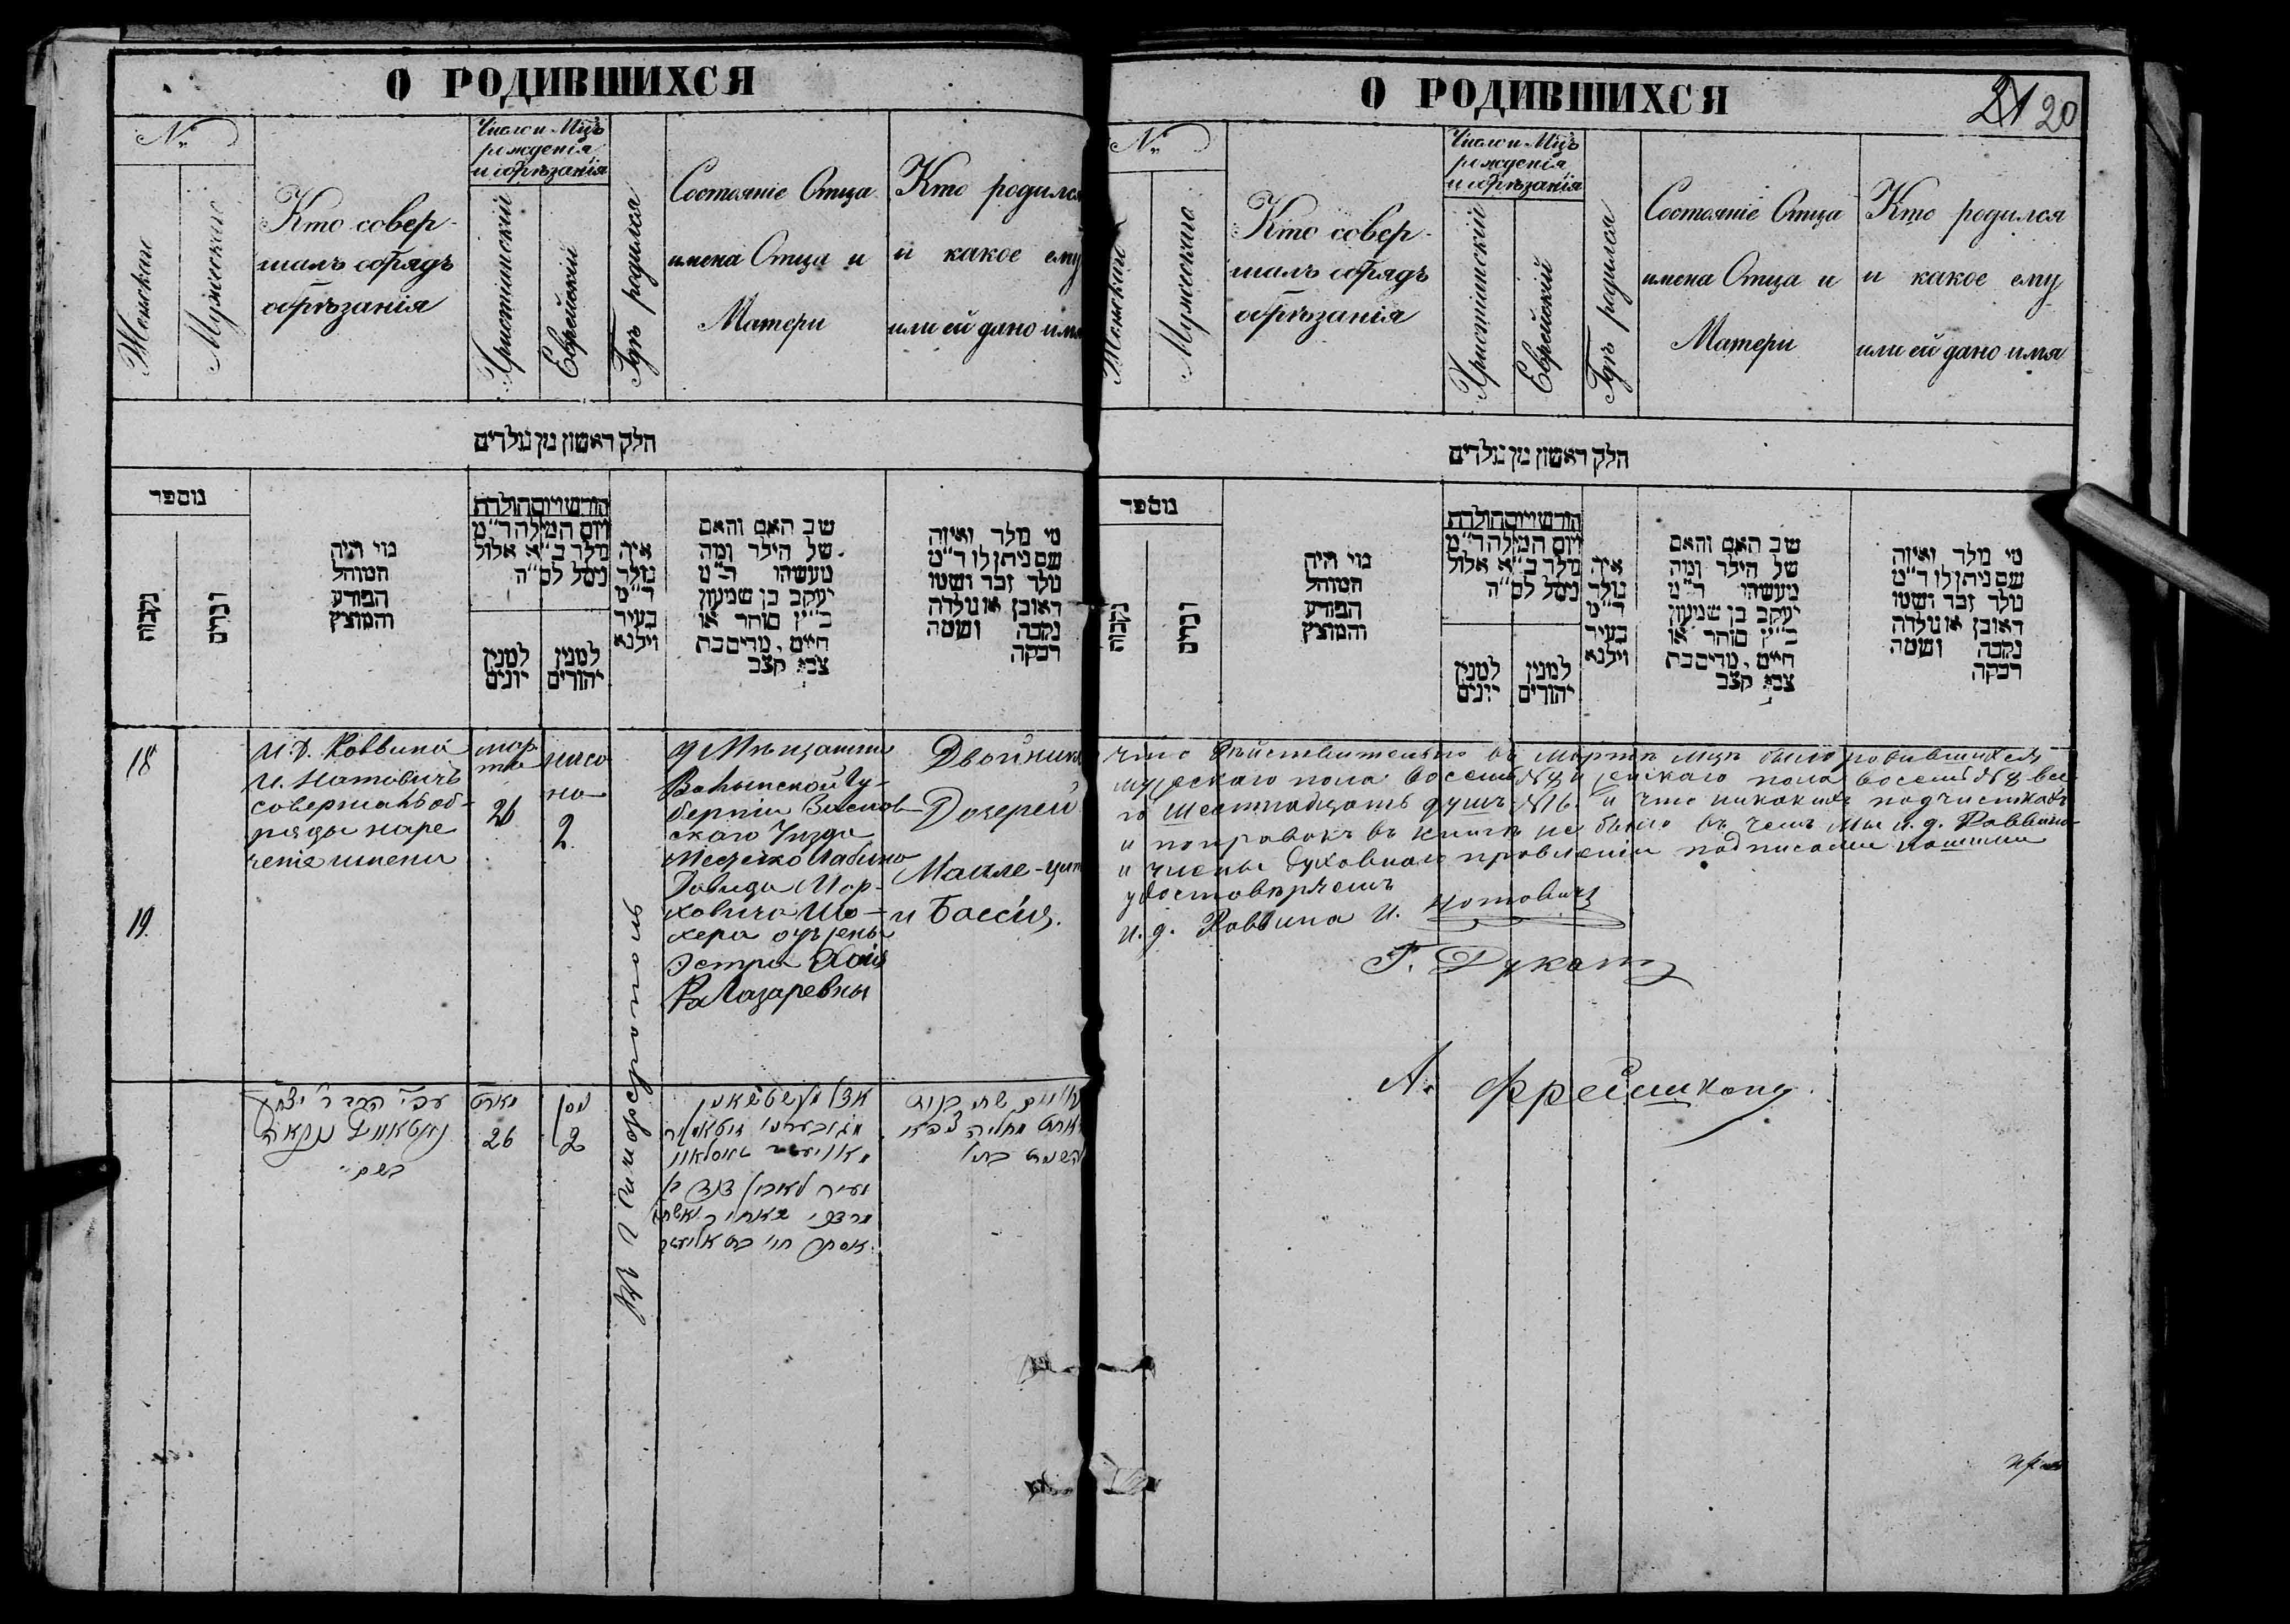 О РОДИВШИХСЯ
№
Женскаго
Мужескаго
Кто совер-
шалъ обрядъ
обрѣзанія
Число и Мцъ
рожденія
и обрѣзанія
Христіанскій
Еврейскій
Гдѣ родился
Состояніе Отца
имена Отца и
Матери
Кто родился
и какое ему
или ей дано имя
חלק ראשון מן נולדים
מספר
נקבות
זכרים
מי היה
המוהל
הפורע
והמוצץ
חודש ויום הולדת
ויום המילה ד״מ
נולד ב״א אלול
נימל לס״ה
למנין
יונים
למנין
יהודים
איה
נולד
ד״מ
בעיר
וילנא
שב האם והאם
של הילד ומה
מעשהו ד״מ
יעקב בן שמעון
כ״ץ סוחר או
חייט, מרים בת
צבי קצב
מי נולד ואיזה
שם ניתן לו ד״מ
נולד זכר ושמו
ראובן או נולדה
נקבה ושמה
רבקה
18
19.
И. Д. Раввина
И. Натовичъ
совершалъ об-
ряды наре
ченія имени
мар
та
26
нисо
на
2.
У Мѣщанина
Волынской Гу-
берніи Заслав-
скаго Уезда
Местечко Лабуно
Давида Мор-
ховича Шо-
хера отъ жены
Эстра Хаи
Лазаревны
Двойника
Дочерей
и Бассія.
въ г. Симферополѣ
ע״י הרב ר׳ יצחק
נאטאוויץ נקרא
בשם
מארט
26
ניסן
2
О РОДИВШИХСЯ
21 20
№
Женскаго
Мужескаго
Кто совер-
шалъ обрядъ
обрѣзанія
Число и Мцъ
рожденія
и обрѣзанія
Христіанскій
Еврейскій
Гдѣ родился
Состояніе Отца
имена Отца и
Матери
Кто родился
и какое ему
или ей дано имя
חלק ראשון מן נולדים
מספר
נקבות
זכרים
מי היה
המוהל
הפורע
והמוצץ
חודש ויום הולדת
ויום המילה ד״מ
נולד ב״א אלול
נימל לס״ה
למנין
יונים
למנין
יהודים
איה
נולד
ד״מ
בעיר
וילנא
שב האם והאם
של הילד ומה
מעשהו ד״מ
יעקב בן שמעון
כ״ץ סוחר או
חייט, מרים בת
צבי קצב
מי נולד ואיזה
שם ניתן לו ד״מ
נולד זכר ושמו
ראובן או נולדה
נקבה ושמה
רבקה
что дѣйствительно въ Мартѣ мцѣ было родившихся
мужескаго пола восемь №8 и женскаго пола восемь №8 все
го шестнадцать душъ №16. и что никакихъ подчистокъ
и поправокъ въ книгѣ не было въ чемъ мы и. д. Раввина
и члены Духовнаго правленія подписами нашими
удостовѣряемъ
и. д. Раввина И. Натовичъ
Г. Дукатъ
А. Фрейшканд